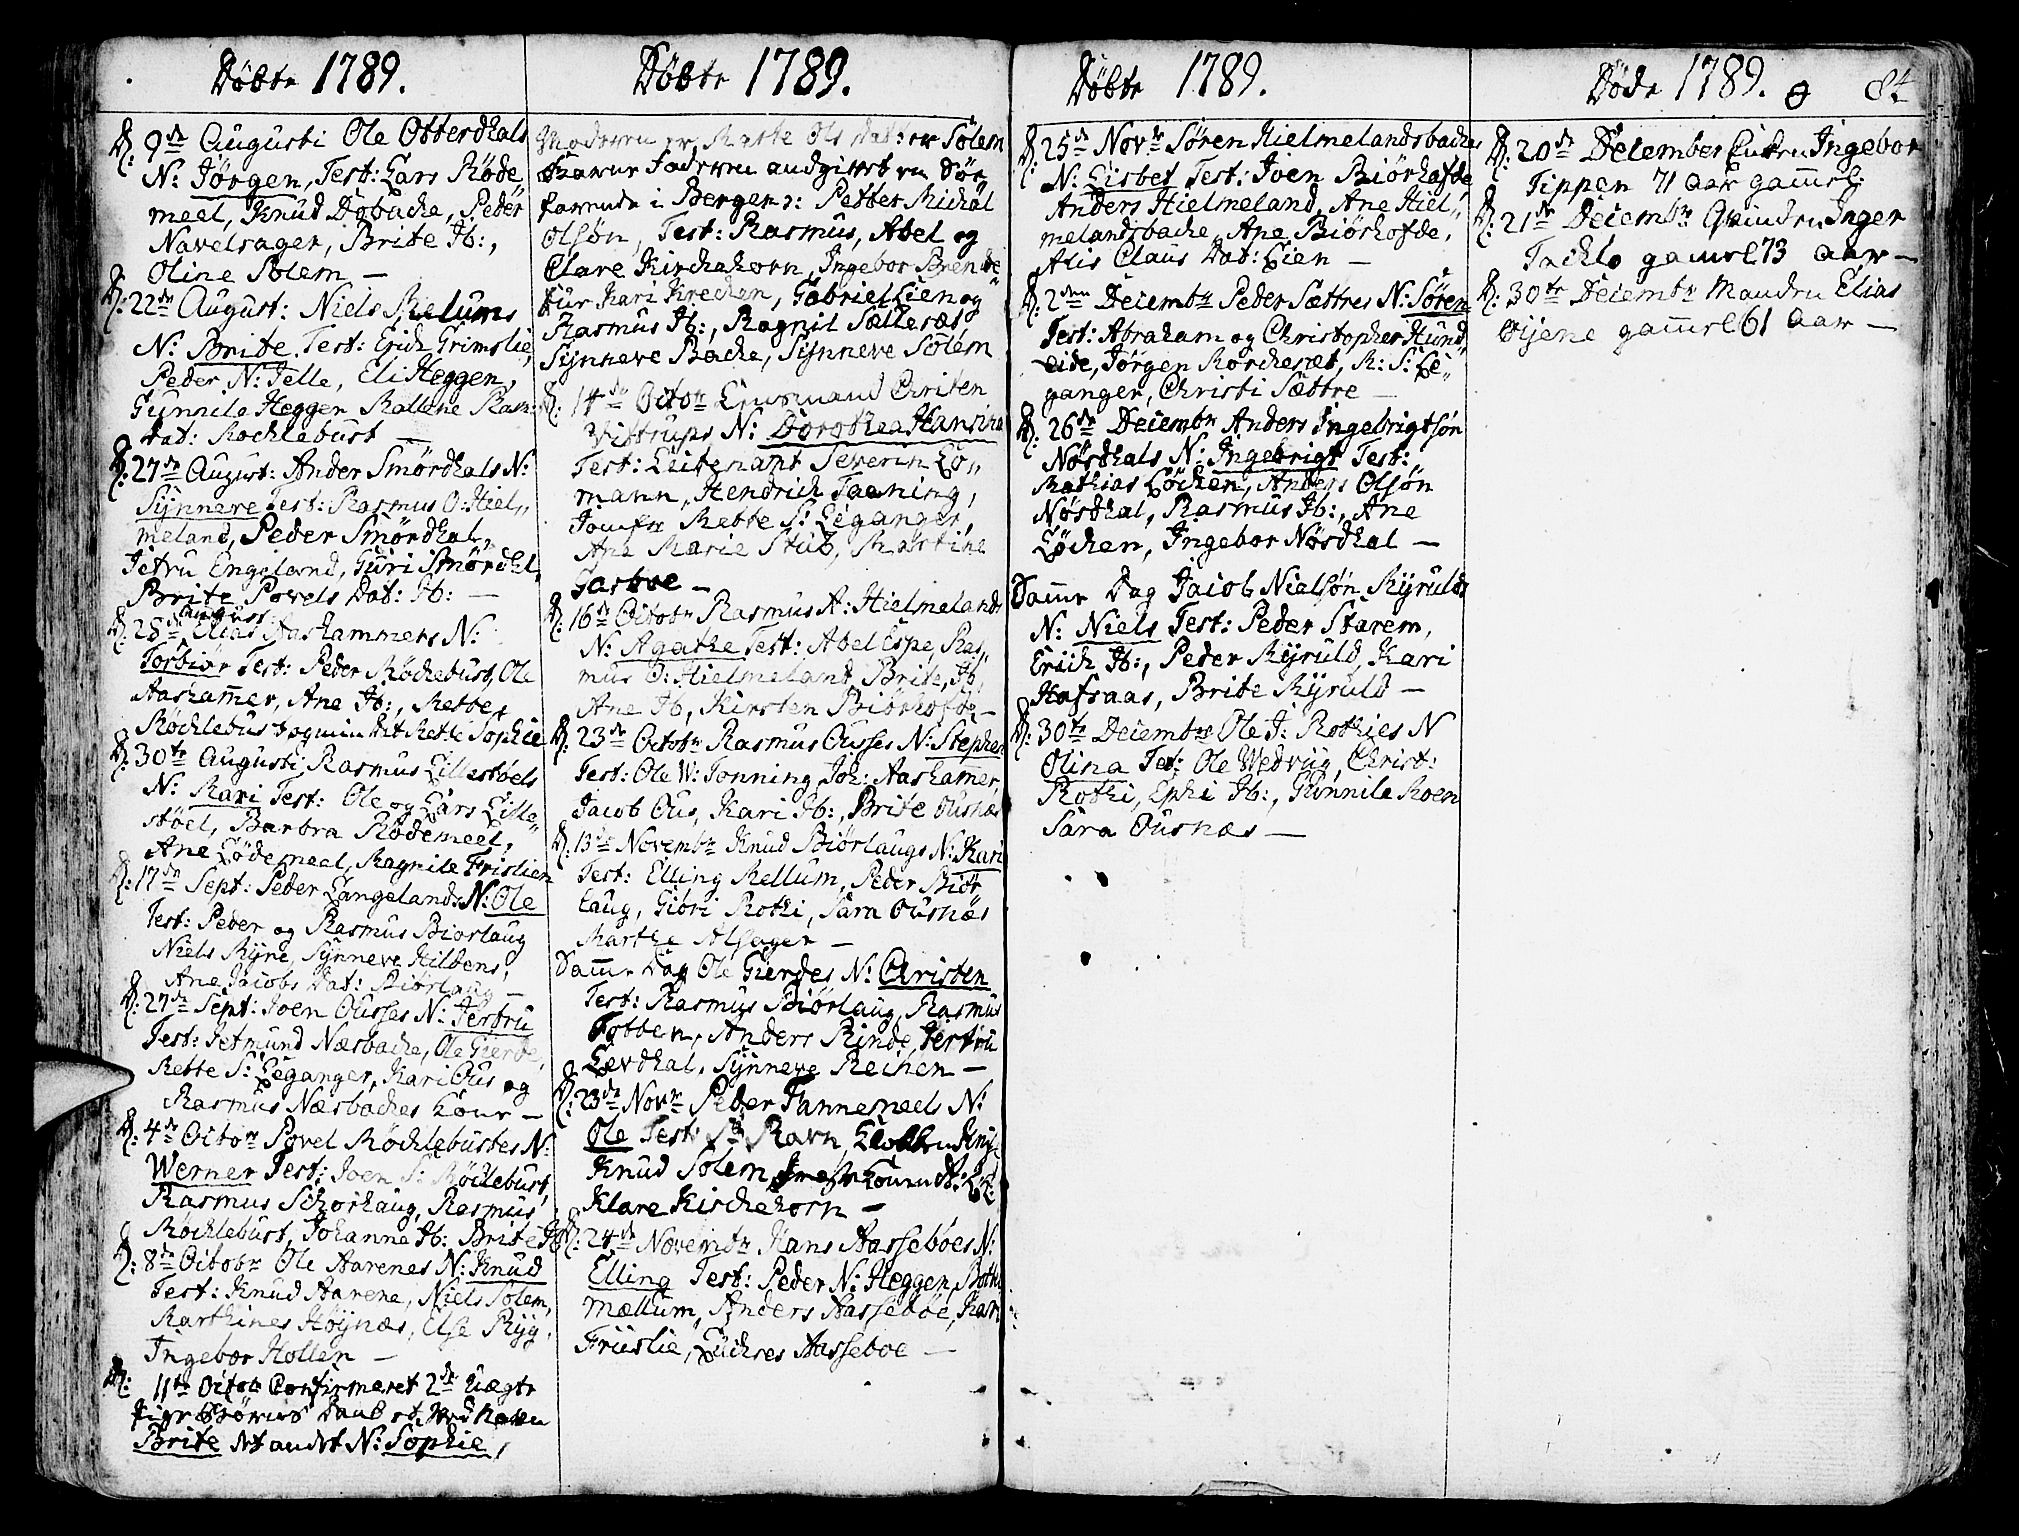 Døbte 1789.
D: 9de Augusti Ole Otterdhals
N: Jørgen, Test: Lars Røde
meel, Knud Døbache, Peder
Navelsager, Brite Jb:,
Oline Solem —
D: 22de August: Niels Melums
N: Brite, Test: Erich Grimslie,
Peder N: Telle, Eli Heggen,
Gunnile Hegger Mallene Rasm:
Dat: Rochlebust —
D: 27de August: Ander Smørdhals N:
Synneve Test: Rasmus O: Hiel„
meland, Peder Smørdhal,
Jetru Engeland, Guri Smørdhl,
Brite Povels Dat: Jb: —
D: 28de August: Elias Aashammers N:
Torbiør Test: Peder Røchebust, Ole
Aashamer, Ane Jb:, Mette
Røchlebust og min Dat: Mette Sophie
D: 30te Augusti Rasmus Lillestøels
N: Kari Test: Ole og Lars Lille„
støel, Barbra Rødemeel,
Ane Lødemeel, Magnile Frislien
D: 17de Sept: Peder Langelands N: Ole
Test: Peder og Rasmus Biorlaug
Niels Myne, Synneve Hilbens,
Ane Jacobs Dat: Biørlaug —
D: 27de Sept: Joen Ousses N: Jertru
Test: Jetmund Næsbache, Ole Gierde,
Mette S: Leganger, Kari Ous og
Rasmus Næsbaches Kone —
D: 4de Octobr Povel Røchlebustes N:
Werner Test: Joen S: Røchlebust,
Rasmus Schorhaug, Rasmus
Røchlebust, Johanne Jb: Brite Jb
D: 8de Octobr Ole Aarenes N: Knud
Test: Knud Aarene, Niels Solem,
Marthines Høynæs, Else Myg,
Ingebor Hollen —
D: 11te Octobr Confirmeret 2de Uægte
Brite det andet N: Sophie,
Døbte 1789.
Moderen er Marte Ols Dat: er Solem
farende i Bergen ɔ: Petter Michal
Olsøn, Test: Rasmus, Abel og
Clare Kirchehorn, Ingebor Brende
tur Kari Krechen, Gabriel Lien og
Rasmus Jb:, Ragnil Sællesæt,
Synneve Bache, Synneve Solem
D: 14de Octobr Christen
N: Dorothea Hansine
Test: Leitenant Severin Lo„
mann, Hendrich Taening,
Jomfr Mette S: Leganger,
Ane Marie Stub, Martine
Gasboe —
D: 16de Octobr Rasmus A: Hielmelands
N: Agathe Test: Abel Espe, Ras„
mus O: Hielmeland, Brite Jb,
Ane Jb, Kirsten Biørhofde —
D: 23de Octobr Rasmus Ousses N: Stephen
Test: Ole W: Tonning Joh: Aashamer,
Jacob Ous, Kari Jb:, Brite Ousnæs
D: 13de Novembr Knud Biørlaugs N: Kari
Test: Elling Mellum, Peder Biør„
laug, Giøri Rothi, Sara Ousnæs
Marthe Alsager —
Samme Dag Ole Gierdes N: Christen
Test: Rasmus Biørlaug, Rasmus
Totten, Anders Rinde, Jertru
Levdhal, Synneve Reihen —
D: 23de Novr Peder Tannemeels N:
Ole Test: Sr Ravn,
Knud Solem,
Klare Kirchehorn —
D: 24de Novembr Hans Aassebøes N:
Elling Test: Peder N: Heggen,
Mællum, Anders Aassebøe, Kari
Friislie, Luchres Aasseboe —
Døbte 1789.
D: 25de Novbr Søren Hielmelandsbaches
N: Lisbet Test: Joen Biørhofde
Anders Hielmeland, Ane Hiel„
melandsbache, Ane Biørhofde,
Alis Claus Dat: Lien —
D: 2den Decembr Peder Sættres N: Søren
Test: Abraham og Christopher Hund„
eide, Jørgen Morchesæt, M: S: Le„
ganger, Christi Sættre —
D: 26de Decembr Anders Ingebrigtsøn
Nøsdhals N: Ingebrigt Test:
Mathias Løchen, Anders Olsøn
Nøsdhal, Rasmus Jb:, Ane
Løchen, Ingebor Nøsdhal —
Samme Dag Jacob Nielsøn Myrulds
N: Niels Test: Peder Starem,
Erich Jb:, Peder Myruld, Kari
Hafsaas, Brite Myruld —
D: 30te Decembr Ole J: Rothies N
Olina Test: Ole Wedvug, Christ:
Rothi, Ephi Jb:, Gunnile Moen
Sara Ousnæs —
Døde 1789. 84
D: 20de December Enken Ingebor
Tippen 71 Aar gamel:
D: 21de Decembr Qvinden Inger
Tachlo gamel 73 Aar —
D: 30te Decembr Manden Elias
Øijene gamel 61 Aar —